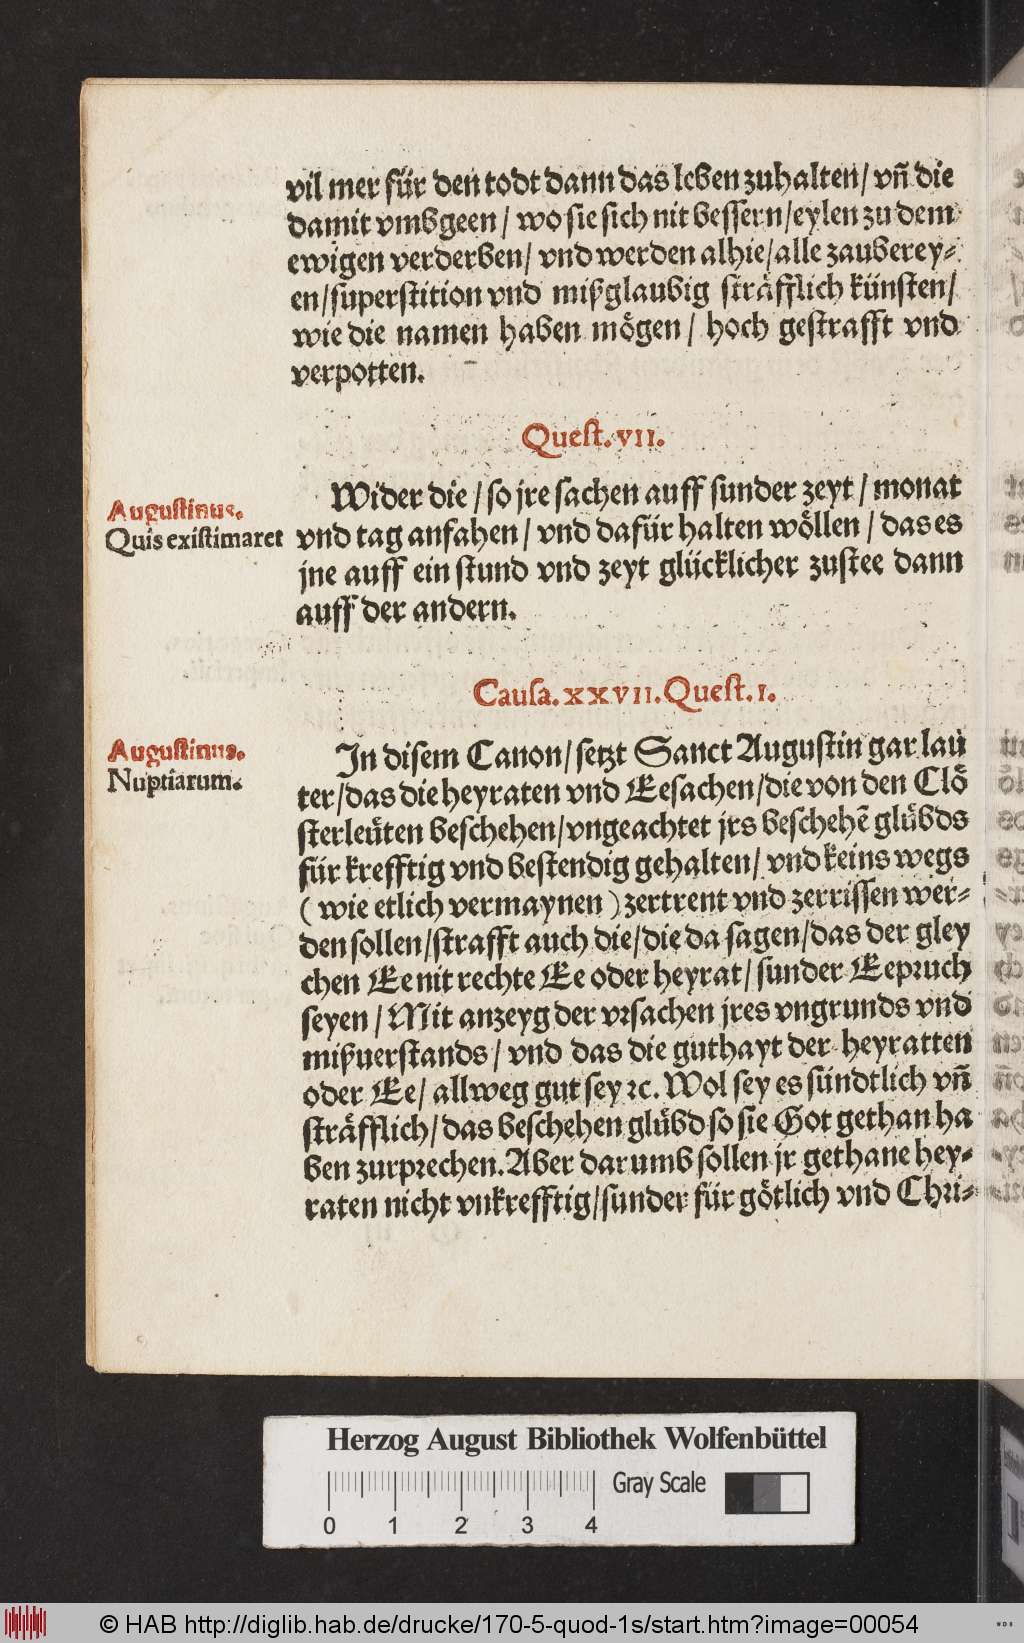 vil mer für den todt dann das leben zuhalten/ vñ die
damit vmbgeen/ wo sie sich nit bessern/eylen zu dem
ewigen verderben/ vnd werden alhie/alle zauberey-
en/superstition vnd mißglaubig sträfflich künsten/
wie die namen haben mögen/ hoch gestrafft vnd
verpotten.
Quest. vii.
Augustinus.
Quis existimaret
Wider die/so jre sachen auff sunder zeyt/ monat
vnd tag anfahen/ vnd dafür halten wöllen/ das es
jne auff ein stund vnd zeyt glücklicher zustee dann
auff der andern.
Causa. xxvii. Quest. i.
Augustinus.
Nuptiarum.
In disem Canon/setzt Sanct Augustin gar lau
ter/das die heyraten vnd Eesachen/die von den Clö
sterleüten beschehen/vngeachtet jrs beschehẽ glübds
für krefftig vnd bestendig gehalten/ vnd keins wegs
(wie etlich vermaynen) zertrent vnd zerrissen wer-
den sollen/strafft auch die/die da sagen/das der gley
chen Ee nit rechte Ee oder heyrat/ sunder Eepruch
seyen/ Mit anzeyg der vrsachen jres vngrunds vnd
mißuerstands/ vnd das die guthayt der heyratten
oder Ee/ allweg gut sey ꝛc. Wol sey es sündtlich vñ
sträfflich/das beschehen glübd so sie Got gethan ha
ben zurprechen. Aber darumb sollen jr gethane hey-
raten nicht vnkrefftig/sunder für götlich vnd Chri-
Herzog August Bibliothek Wolfenbüttel
Gray Scale
0 1 2 3 4
© HAB http://diglib.hab.de/drucke/170-5-quod-1s/start.htm?image=00054